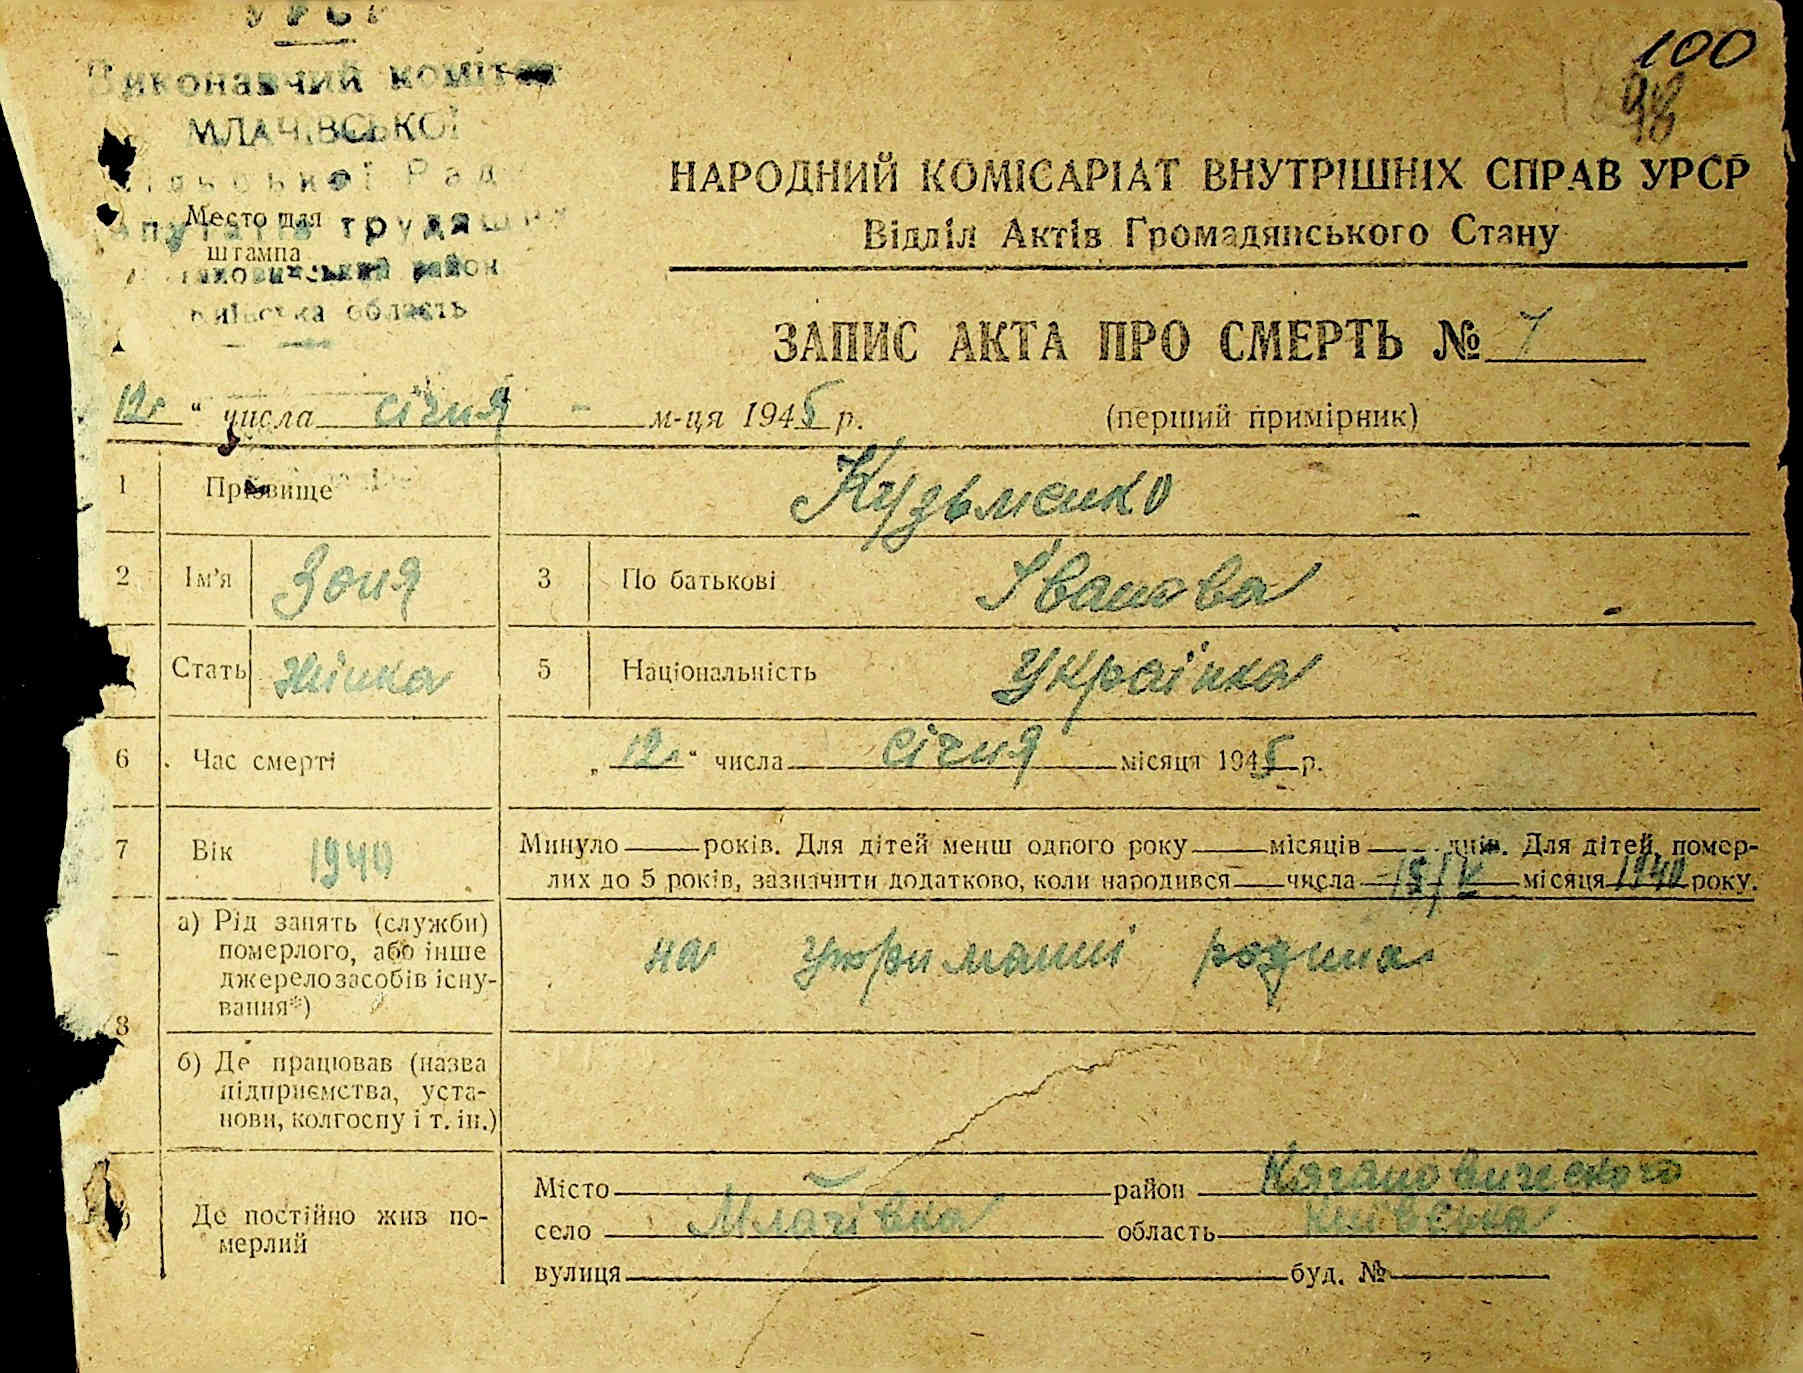 УРСР
Виконавчий комітет
МЛАЧІВСЬКОЇ
сільської Рад
депутатів трудящих
Место для
штампа
Кагановичський район
Київська область
100
98
НАРОДНИЙ КОМІСАРІАТ ВНУТРІШНІХ СПРАВ УРСР
Відділ Актів Громадянського Стану
ЗАПИС АКТА ПРО СМЕРТЬ № 7
12 " числа січня м-ця 1945 р. (перший примірник)
1 Прізвище Кузьменко
2 Ім'я Зоня 3 По батькові Іванова
Стать жінка 5 Національність Українка
6 Час смерті „ 12 " числа січня місяця 1945 р.
7 Вік 1940 Минуло років. Для дітей менш одного року місяців днів. Для дітей, помер-
лих до 5 років, зазначити додатково, коли народився числа 15/V місяця 1940 року.
8 а) Рід занять (служби)
померлого, або інше
джерело засобів існу-
вання*)
на утриманні родина
б) Де працював (назва
підприємства, уста-
нови, колгоспу і т. ін.)
Де постійно жив по-
мерлий
Місто район Кагановичського
село Млачівка область Київська
вулиця буд. №